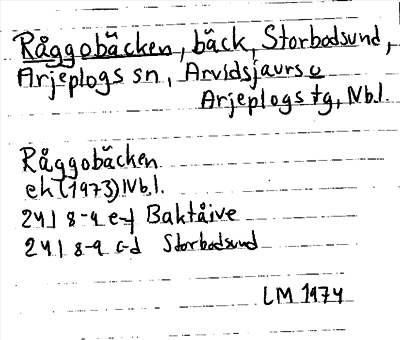 Råggobäcken, bäck, Storbodsund,
Arjeplogs sn, Arvidsjaurs o
Arjeplogs tg, Nb.l.
Råggobäcken
ek (1973) Nb.l.
24I 8-9 e-f Baktåive
24I 8-9 c-d Storbodsund
LM 1974